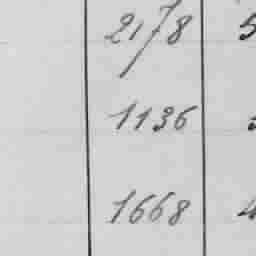 2178 5
1136
1668 4